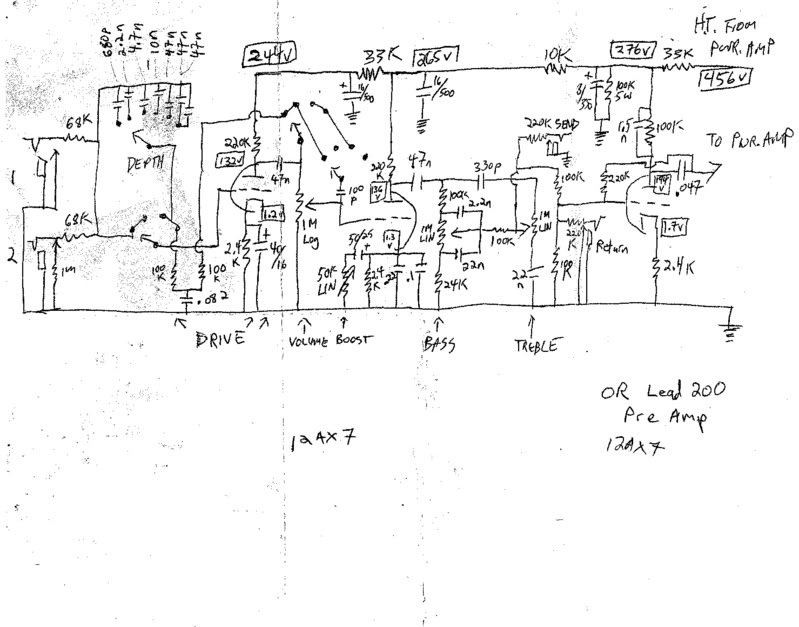 680p
2.2n
4.7n
10n
47n
47n
47n
244V
33K
265V
10K
276V
33K
H.T. From
PWR. AMP
456V
16/500
16/500
8/550
100K
5W
68K
220K
132V
47n
220K SEND
100K
TO PWR. AMP
.047
1
DEPTH
100
P
220
K
47n
330p
100K
220K
2
68K
1M
1M
Log
1.3V
50/25
1M
LIN
100K
2.2n
100K
22n
1M
LIN
Return
1.7V
2.4K
100
K
100
K
.082
2.4
K
50K
LIN
2.4
K
.1
24K
22
n
DRIVE
VOLUME
BOOST
BASS
TREBLE
12AX7
OR Lead 200
Pre Amp
12AX7